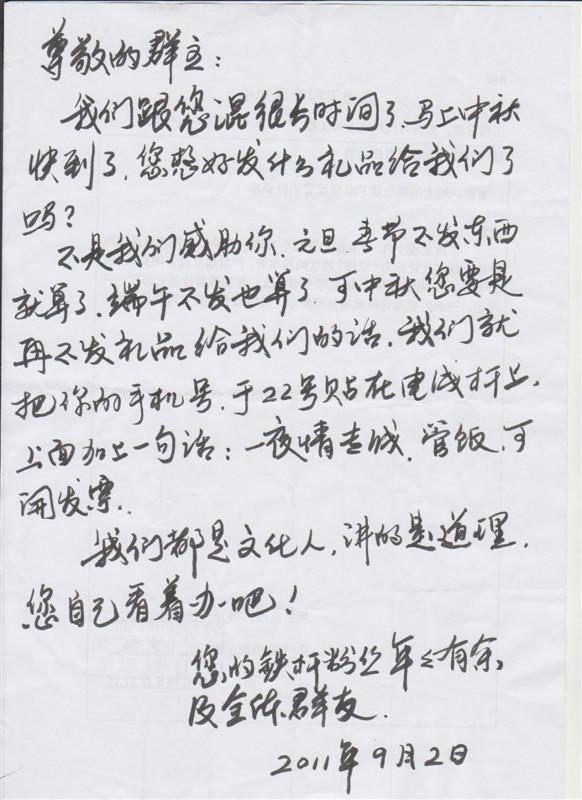 尊敬的群主：
我们跟您混很长时间了，马上中秋
快到了，您想好发什么礼品给我们了
吗？
不是我们威胁你，元旦春节不发东西
就算了，端午不发也算了，可中秋您要是
再不发礼品给我们的话，我们就
把你的手机号，于22号贴在电线杆上，
上面加上一句话：一夜情专线，管饭，可
开发票。
我们都是文化人，讲的是道理，
您自己看着办吧！
您的铁杆粉丝年年有余
及全体群友.
2011年9月2日